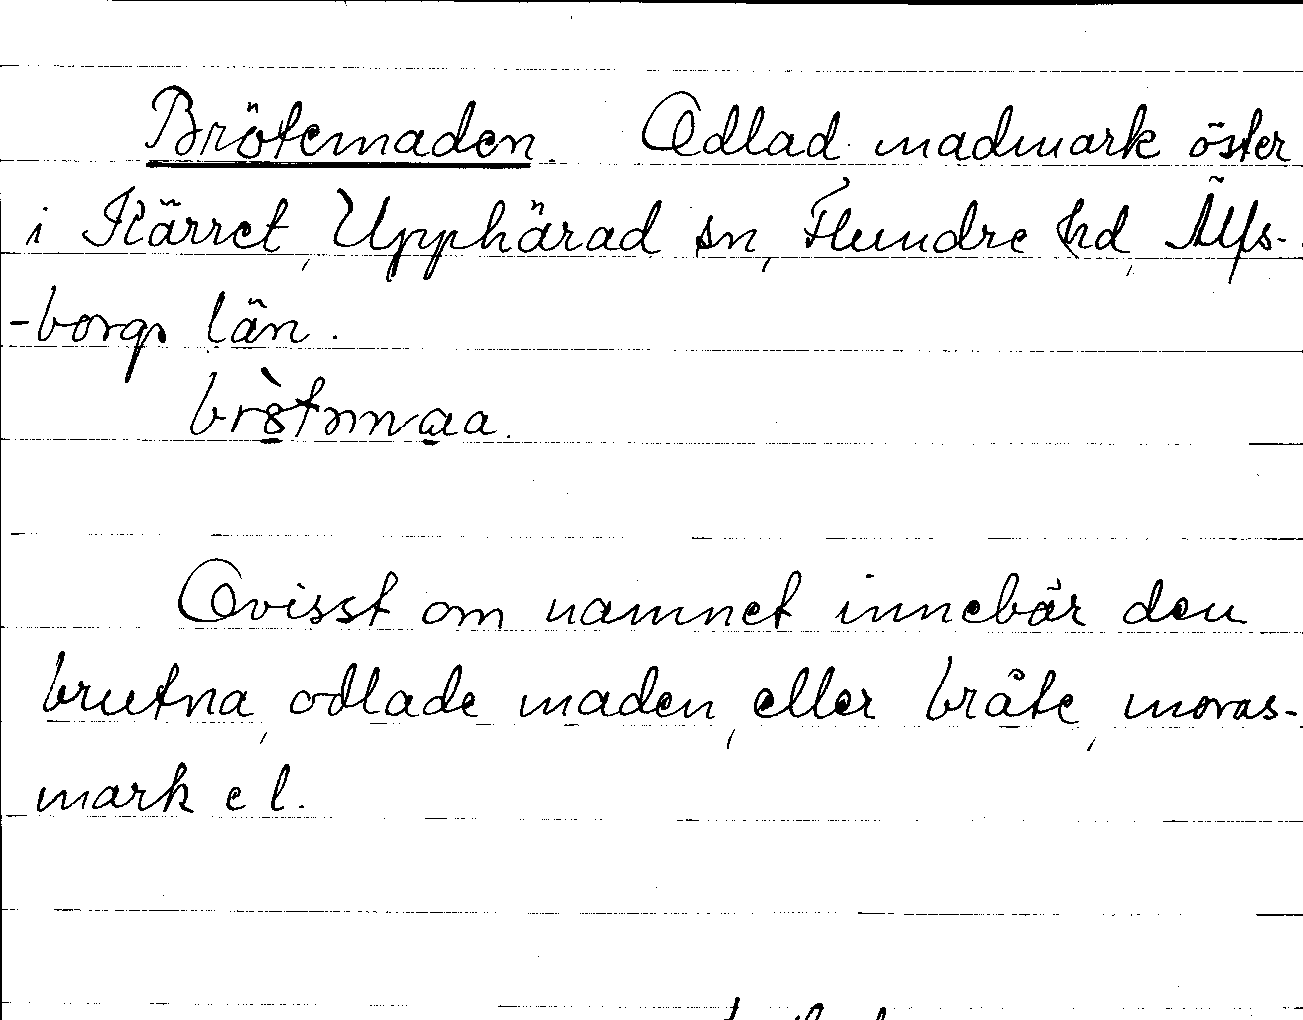 Brötemaden. Odlad madmark öster
i Kärret, Upphärad sn, Flundre hd, Älfs-
-borgs län.
Ovisst om namnet innebär den
brutna, odlade maden, eller bråte, moras-
mark e l.